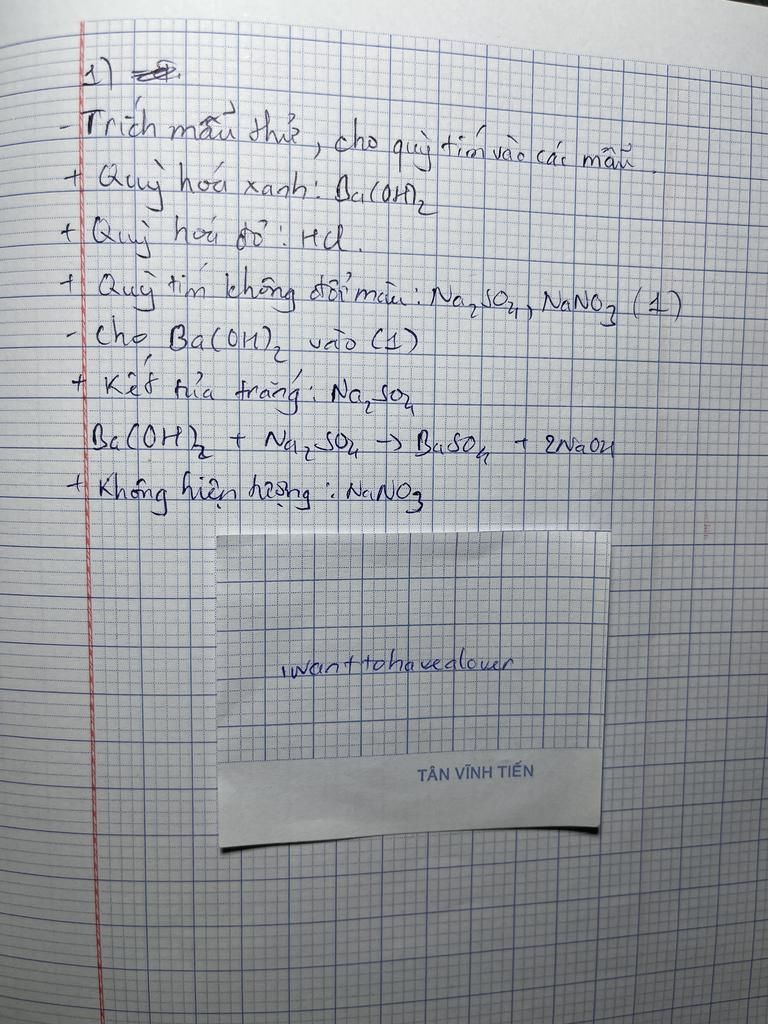 1)
- Trích mẫu thử, cho quỳ tím vào các mẫu.
+ Quỳ hoá xanh: Ba(OH)₂
+ Quỳ hoá đỏ: HCl.
+ Quỳ tím không đổi màu: Na₂SO₄, NaNO₃ (1)
- Cho Ba(OH)₂ vào (1)
+ Kết tủa trắng: Na₂SO₄
Ba(OH)₂ + Na₂SO₄ → BaSO₄ + 2NaOH
+ Không hiện tượng: NaNO₃
iwanttohavealover
TÂN VĨNH TIẾN